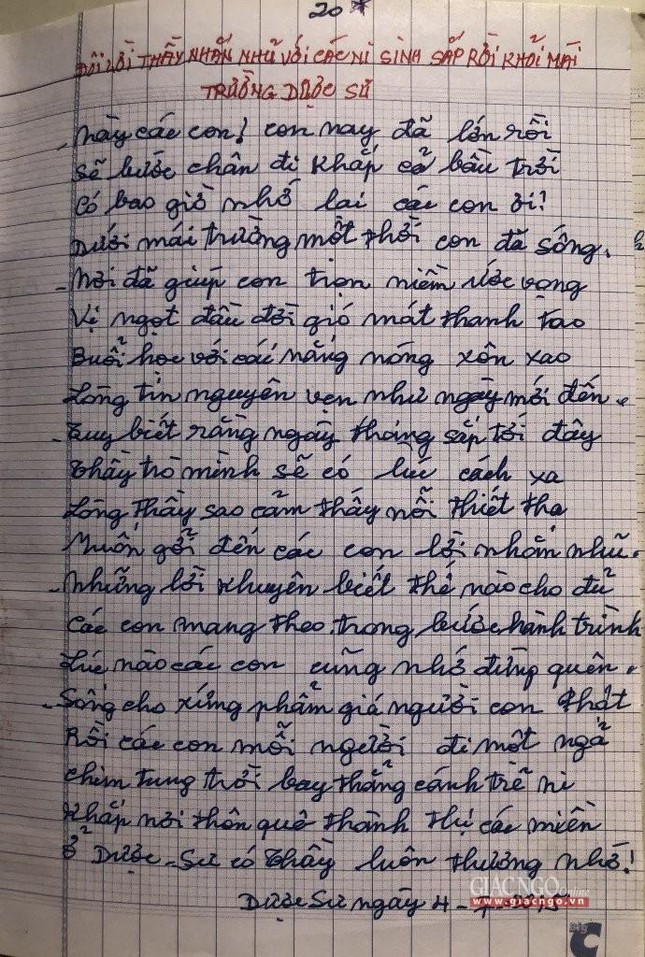 20
ĐÔI LỜI THẦY NHẮN NHỦ VỚI CÁC NI SINH SẮP RỜI KHỎI MÁI
TRƯỜNG DƯỢC SƯ
- Này các con! con nay đã lớn rồi
Sẽ bước chân đi khắp cả bầu trời
Có bao giờ nhớ lại các con ơi?
Dưới mái trường một thời con đã sống.
- Nơi đã giúp con trọn niềm ước vọng
Vị ngọt đầu đời gió mát thanh tao
Buổi học với cái nắng nóng xôn xao
Lòng tin nguyên vẹn như ngày mới đến.
- Tuy biết rằng ngày tháng sắp tới đây
Thầy trò mình sẽ có lúc cách xa
Lòng Thầy sao cảm thấy nỗi thiết tha
Muốn gởi đến các con lời nhắn nhủ.
- Những lời khuyên biết thế nào cho đủ
Các con mang theo trong bước hành trình
Lúc nào các con cũng nhớ đừng quên.
- Sống cho xứng phẩm giá người con Phật
Rồi các con mỗi người đi một ngả
Chim tung trời bay thẳng cánh trẻ ni
Khắp nơi thôn quê thành thị các miền
Ở Dược-Sư có Thầy luôn thương nhớ!
Dược Sư ngày 4
GIACNGO Online
www.giacngo.vn
C